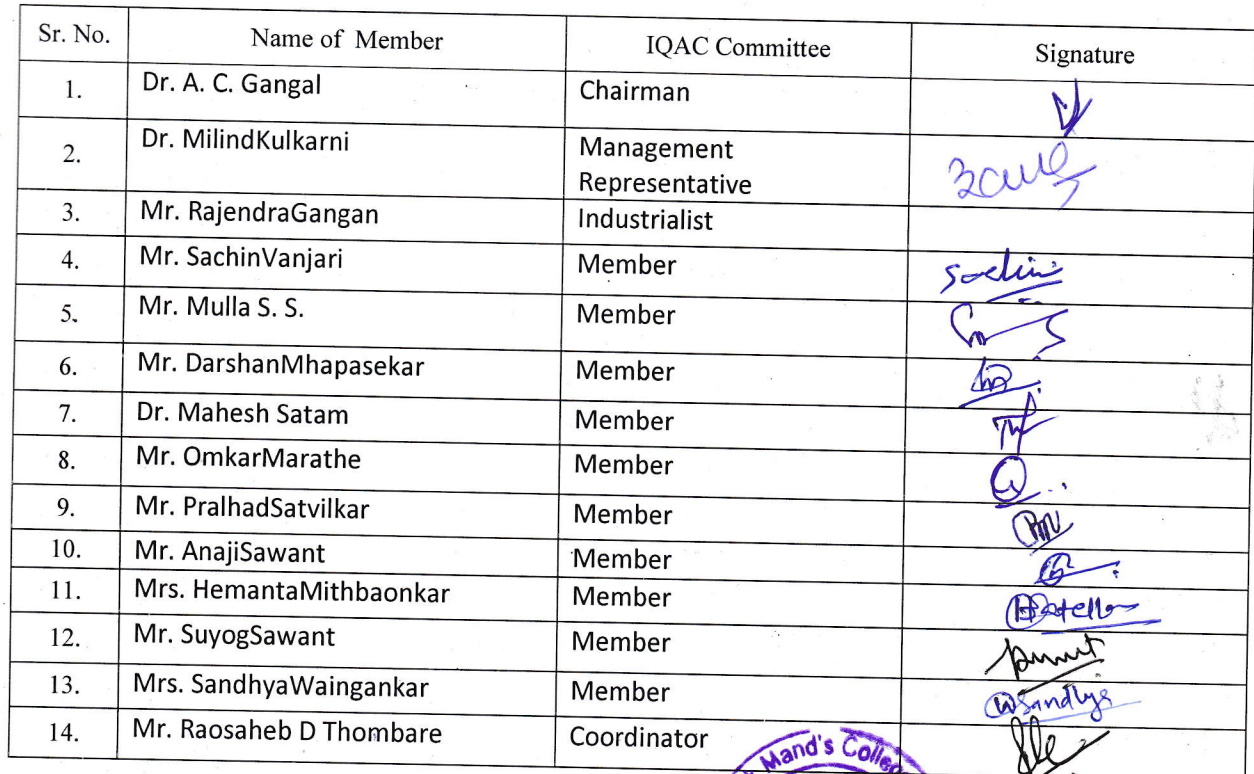 Sr. No. Name of Member IQAC Committee Signature
1. Dr. A. C. Gangal Chairman
2. Dr. MilindKulkarni Management
Representative
3. Mr. RajendraGangan Industrialist
4. Mr. SachinVanjari Member Sachin
5. Mr. Mulla S. S. Member
6. Mr. DarshanMhapasekar Member
7. Dr. Mahesh Satam Member
8. Mr. OmkarMarathe Member
9. Mr. PralhadSatvilkar Member
10. Mr. AnajiSawant Member
11. Mrs. HemantaMithbaonkar Member
12. Mr. SuyogSawant Member
13. Mrs. SandhyaWaingankar Member WSandhya
14. Mr. Raosaheb D Thombare Coordinator
Mand's